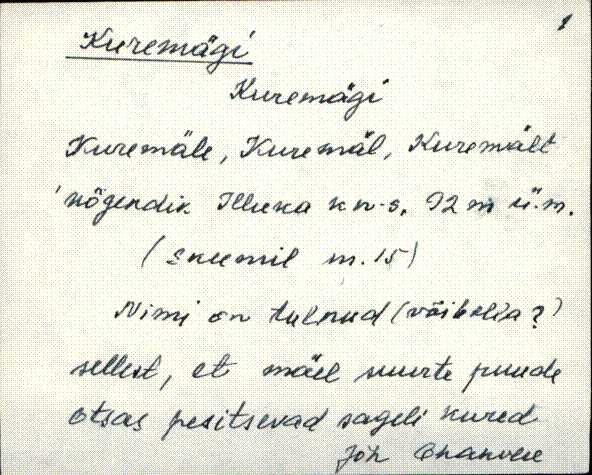 1
Kuremägi
Kuremägi
Kuremäle, Kuremäl, Kuremält
kõgendik Illuka kn-s. 92 m ü.m.
(skeemil m. 15)
Nimi on tulnud (võibolla?)
sellest, et mäel suurte puude
otsas pesitsevad sageli kured
Joh